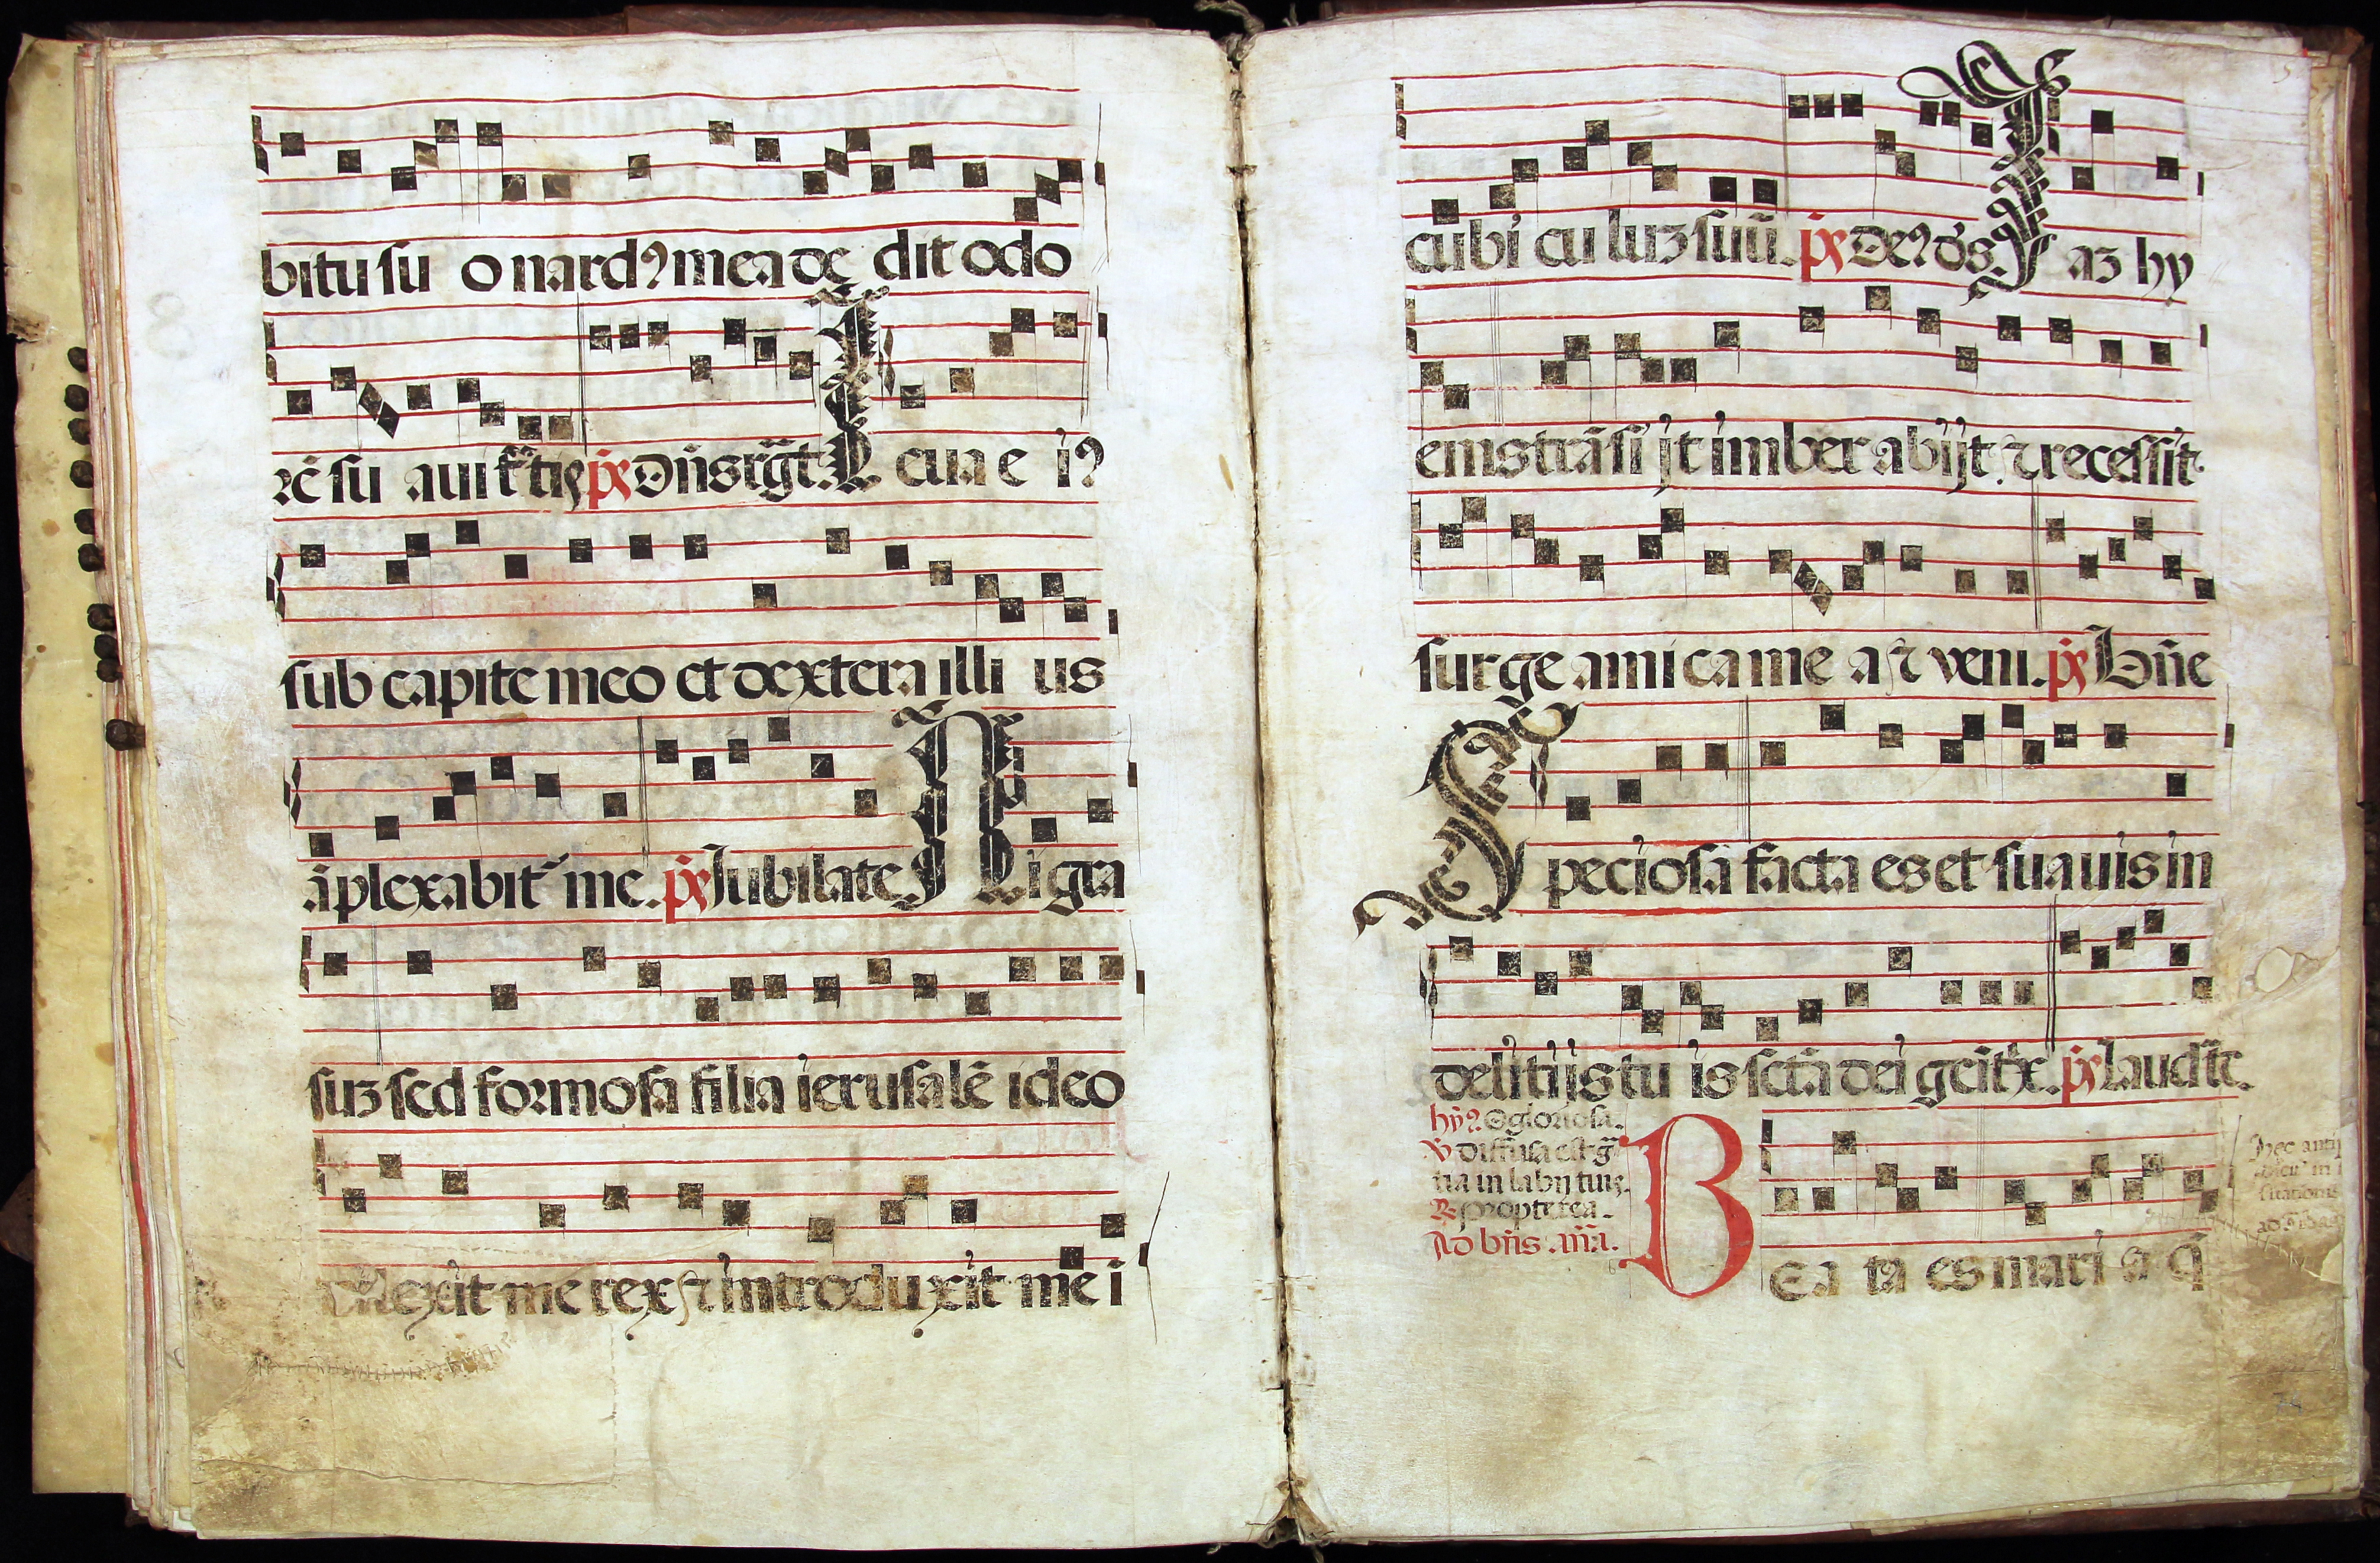 bitu su o nardꝯ mea de dit odo
rē su aui tatis ps Dñs rgt. L eua e iꝯ
sub capite meo et dextera illi us
āplexabit me. ps Jubilate N igra
suz sed formosa filia ierusalē ideo
dilexit me rex ⁊ introdu xit me i
cubi cu luz suū. ps Deꝯ ds J az hy
ems trāsi jt imber abijt ⁊ recessit
surge ami ca me a ⁊ veni. ps Bñe
S peciosa facta es et suauis in
delitijs tu is sctā dei geitx. ps Laudate.
hyꝯ O gloriosa.
V diffusa est g
tia in labijs tuis.
R propterea.
Ad bñs. añā.
B ea ta es mari a q̄
hec anti